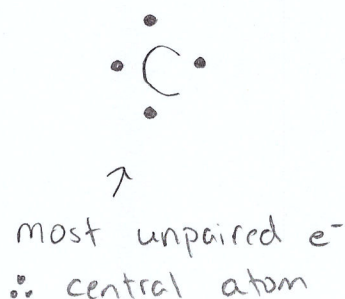 C
most unpaired e⁻
∴ central atom